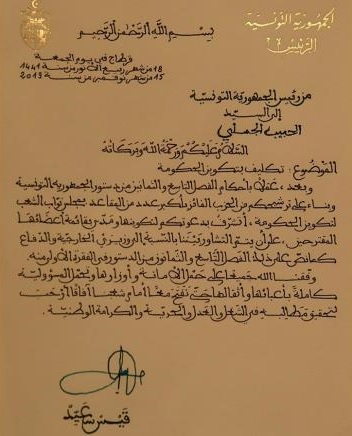 الجمهورية التونسية
الرئيس
بسم الله الرحمن الرحيم
قرطاج في يوم الجمعة
18 من شهر ربيع الأنور من سنة 1441
15 من شهر نوفمبر من سنة 2019
من رئيس الجمهورية التونسية
إلى السيد
الحبيب الجملي
السلام عليكم ورحمة الله وبركاته
الموضوع : تكليف بتكوين الحكومة
وبعد ، عملا بأحكام الفصل التاسع والثمانين من دستور الجمهورية التونسية
وبناء على ترشيحكم من الحزب الفائز بأكبر عدد من المقاعد بمجلس نواب الشعب
لتكوين الحكومة ، أتشرف بدعوتكم لتكوينها ومدي بقائمة أعضائها
المقترحين ، على أن يتم التشاور بيننا بالنسبة إلى وزيري الخارجية والدفاع
كما نص على ذلك الفصل التاسع والثمانون من الدستور في الفقرة الأولى منه .
وفقنا الله جميعا على حمل الأمانة وأوزارها وتحمل المسؤولية
كاملة بأعبائها وأثقالها حتى نفتح معا أمام شعبنا آفاقا أرحب
لتحقيق مطالبه في الشغل والعدل والحرية والكرامة الوطنية .
قيس سعيد